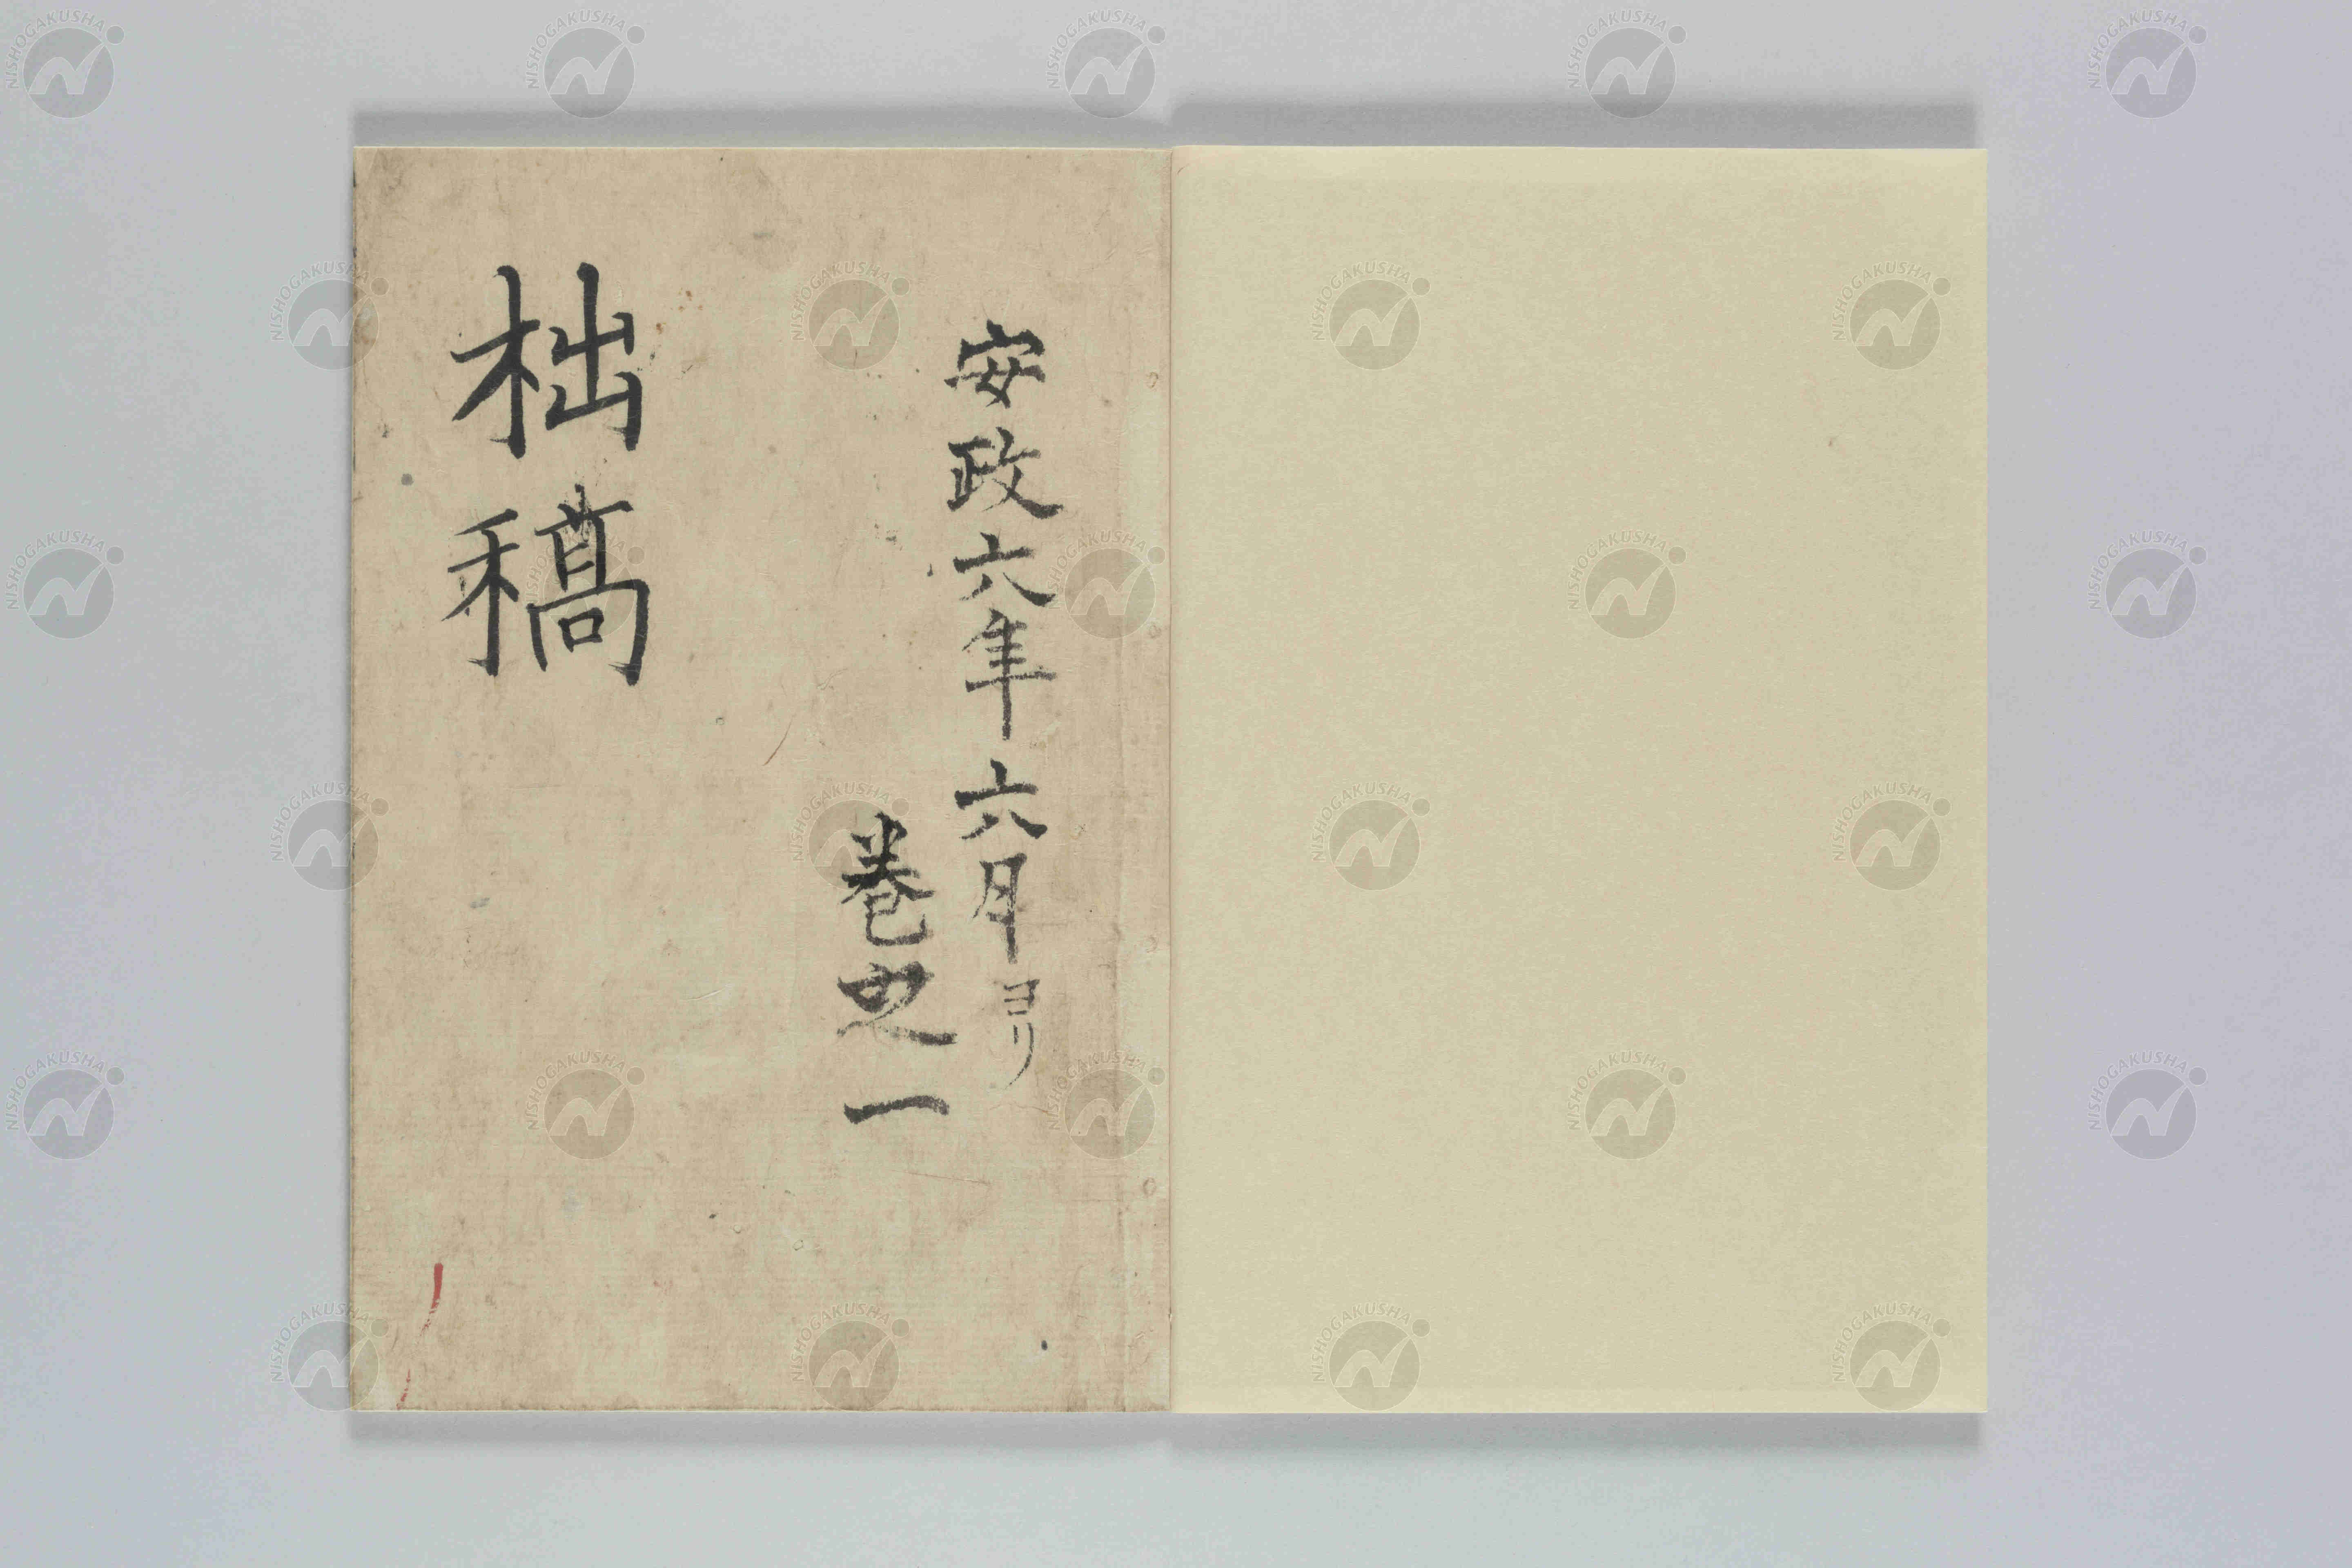 安政六年六月ヨリ
巻之一
柮稿
NISHOGAKUSHA